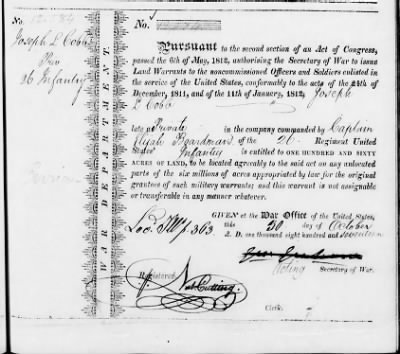 No. 12.584
No.
Joseph L Cobb
Priv
26 Infantry
WAR DEPARTMENT.
Pursuant to the second section of an Act of Congress,
passed the 6th of May, 1812, authorising the Secretary of War to issue
Land Warrants to the noncommissioned Officers and Soldiers enlisted in
the service of the United States, conformably to the acts of the 24th of
December, 1811, and of the 11th of January, 1812, Joseph
L Cobb
late a Private in the company commanded by Captain
Elijah Boardman's of the 26 Regiment United
States' Infantry is entitled to ONE HUNDRED AND SIXTY
ACRES OF LAND, to be located agreeably to the said act on any unlocated
parts of the six millions of acres appropriated by law for the original
grantees of such military warrants; and this warrant is not assignable
or transferable in any manner whatever.
GIVEN at the War Office of the United States,
this 30 day of October
A. D. one thousand eight hundred and seventeen
Geo: Graham
Acting Secretary of War.
Registered
Nat Cutting
Clerk.